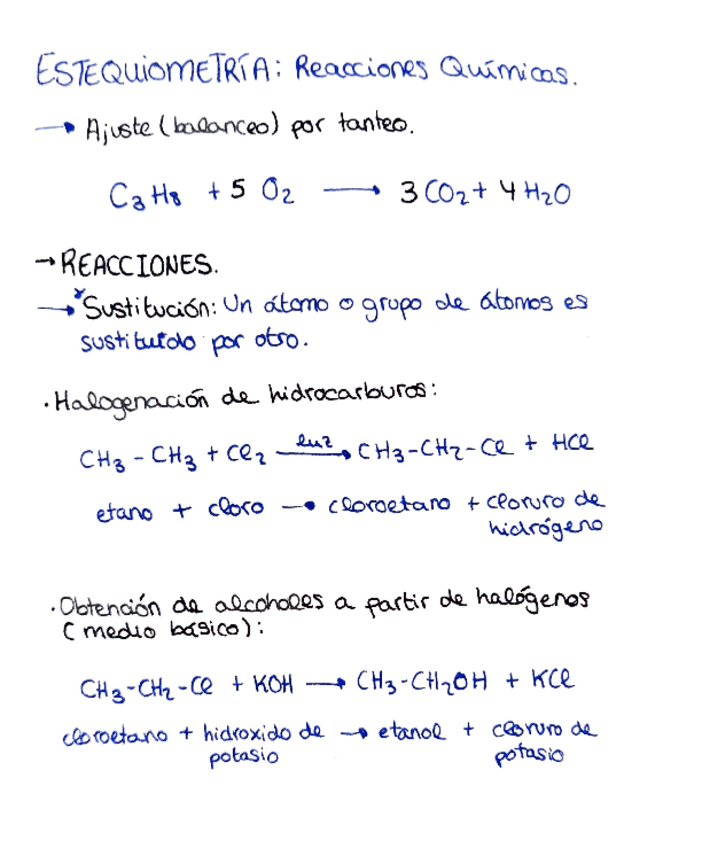 ESTEQUIOMETRÍA: Reacciones Químicas.
→ Ajuste (balanceo) por tanteo.
C₃H₈ + 5 O₂ → 3 CO₂ + 4 H₂O
→ REACCIONES.
→ * Sustitución: Un átomo o grupo de átomos es
sustituído por otro.
· Halogenación de hidrocarburos:
CH₃ - CH₃ + Cl₂ luz→ CH₃-CH₂-Cl + HCl
etano + cloro → cloroetano + cloruro de
hidrógeno
· Obtención de alcoholes a partir de halógenos
(medio básico):
CH₃-CH₂-Cl + KOH → CH₃-CH₂OH + KCl
cloroetano + hidroxido de → etanol + cloruro de
potasio potasio